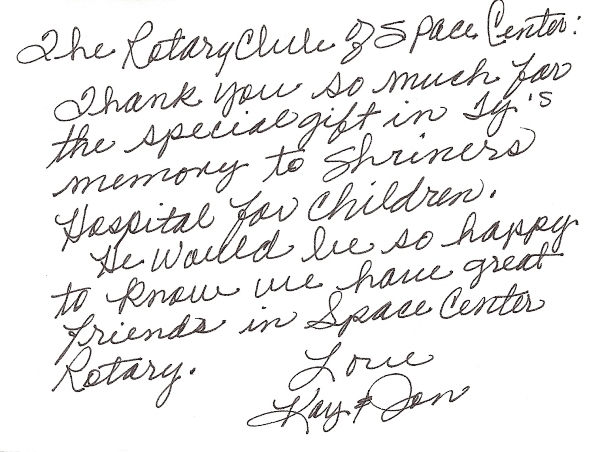 The Rotary Club of Space Center:
Thank you so much for
the special gift in Ty's
memory to Shriners
Hospital for Children.
He would be so happy
to know we have great
friends in Space Center
Rotary.
Love
Kay & Jon